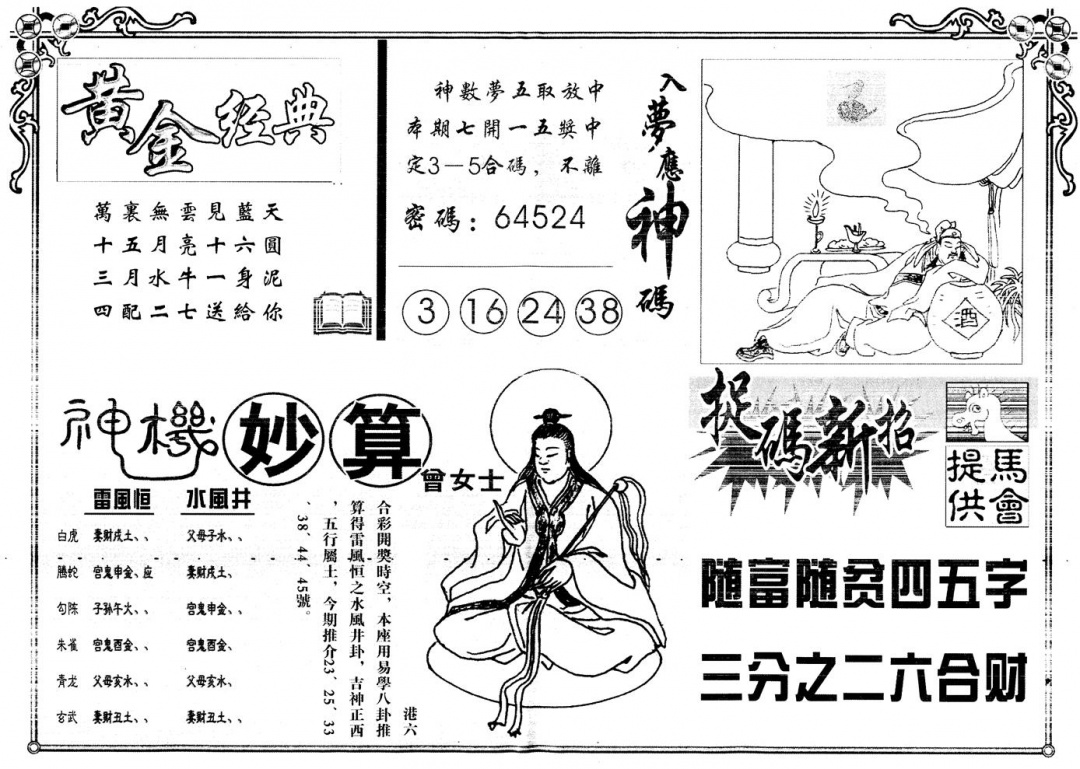 黄金经典
萬裏無雲見藍天
十五月亮十六圓
三月水牛一身泥
四配二七送給你
神數夢五取放中
本期七開一五獎中
定3—5合碼，不離
密碼：64524
3 16 24 38
入夢應神碼
酒
神機妙算
曾女士
雷風恒 水風井
白虎 妻財戌土、、 父母子水、、
騰蛇 官鬼申金、应 妻財戌土、
勾陈 子孙午火、、 官鬼申金、、
朱雀 官鬼酉金、、 官鬼酉金、
青龙 父母亥水、、 父母亥水、
玄武 妻財丑土、、 妻財丑土、、
港六
合彩開獎時空，本座用易學八卦推
算得雷風恒之水風井卦，吉神正西
，五行屬土，今期推介23、25、33
、38、44、45號。
捉碼新招
馬會
提供
随富随贫四五字
三分之二六合财